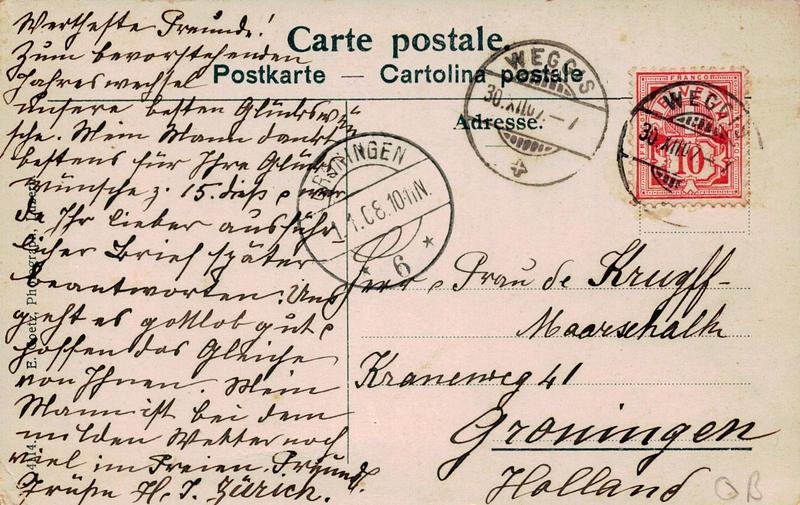 Carte postale.
Postkarte — Cartolina postale
Adresse.
Wertheste Freunde!
Zum bevorstehenden
Jahreswechsel
unsere besten Glückswün-
sche. Mein Mann dankt
bestens für Ihre Glück
wünsche z. 15. dieß
da Ihr lieber ausführ
licher Brief später
beantworten. Uns
geht es gottlob gut
hoffen das Gleiche
von Ihnen. Mein
Mann ist bei dem
milden Wetter noch
viel im Freien. Freundl.
Grüße H. J. Zürich.
WEGGIS
30.XII07.–7
FRANCO
HELVETIA
10
WEGGIS
30.XII07
GRONINGEN
1.1.08.10-11N.
6
Herr & Frau de Kruyff-
Maarschalk
Kraneweg 41
Groningen
Holland
E. Goetz, Photograph, Luzern
4114
OB